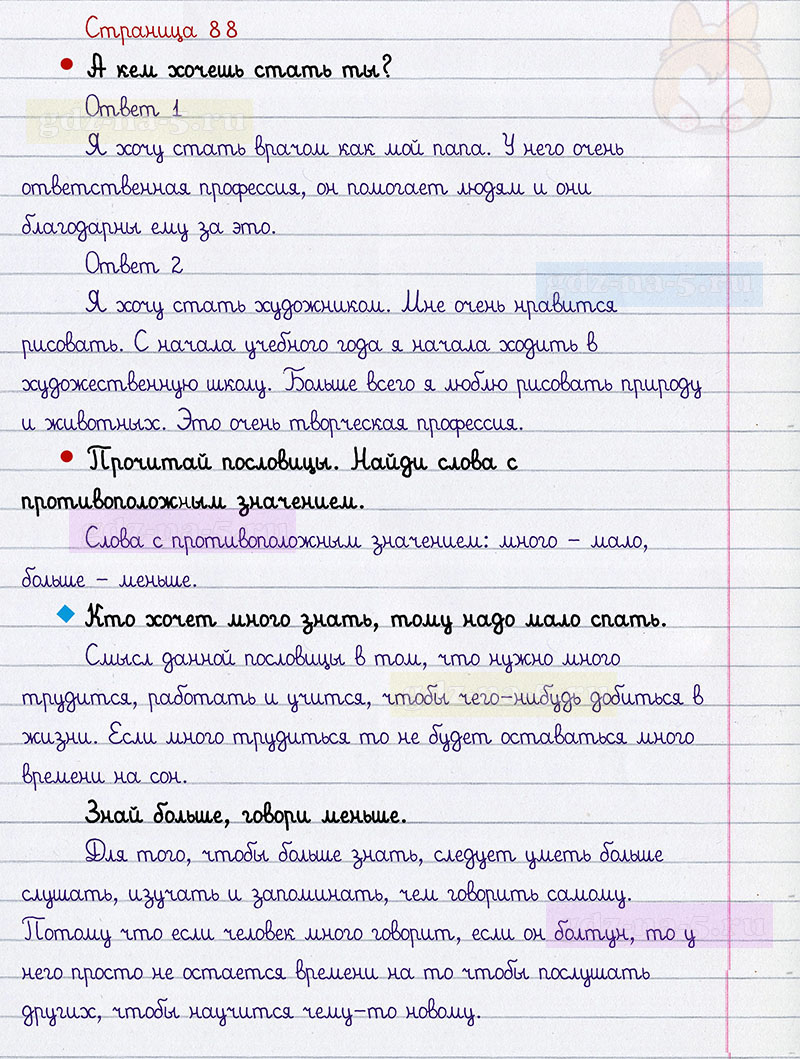 Страница 88
А кем хочешь стать ты?
Ответ 1
gdz-na-5.ru
Я хочу стать врачом как мой папа. У него очень
ответственная профессия, он помогает людям и они
благодарны ему за это.
Ответ 2
gdz-na-5.ru
Я хочу стать художником. Мне очень нравится
рисовать. С начала учебного года я начала ходить в
художественную школу. Больше всего я люблю рисовать природу
и животных. Это очень творческая профессия.
Прочитай пословицы. Найди слова с
противоположным значением.
gdz-na-5.ru
Слова с противоположным значением: много – мало,
больше – меньше.
Кто хочет много знать, тому надо мало спать.
Смысл данной пословицы в том, что нужно много
трудится, работать и учится, чтобы чего-нибудь добиться в
gdz-na-5.ru
жизни. Если много трудиться то не будет оставаться много
времени на сон.
Знай больше, говори меньше.
Для того, чтобы больше знать, следует уметь больше
слушать, изучать и запоминать, чем говорить самому.
Потому что если человек много говорит, если он болтун, то у
gdz-na-5.ru
него просто не остается времени на то чтобы послушать
других, чтобы научится чему-то новому.